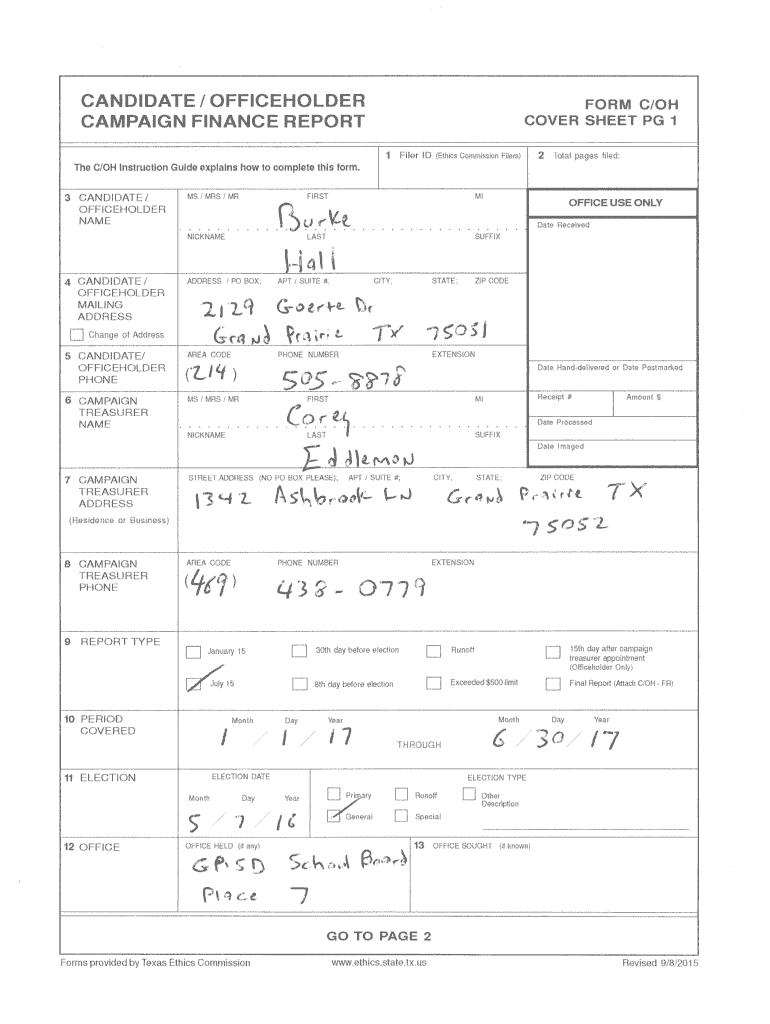 CANDIDATE / OFFICEHOLDER
CAMPAIGN FINANCE REPORT
FORM C/OH
COVER SHEET PG 1
The C/OH Instruction Guide explains how to complete this form.
1 Filer ID (Ethics Commission Filers)
2 Total pages filed:
3 CANDIDATE / OFFICEHOLDER NAME
MS / MRS / MR FIRST MI
Burke
NICKNAME LAST SUFFIX
Hall
OFFICE USE ONLY
Date Received
4 CANDIDATE / OFFICEHOLDER MAILING ADDRESS
Change of Address
ADDRESS / PO BOX; APT / SUITE #; CITY; STATE; ZIP CODE
2129 Goerte Dr
Grand Prairie TX 75051
5 CANDIDATE/ OFFICEHOLDER PHONE
AREA CODE PHONE NUMBER EXTENSION
(214) 505-8878
Date Hand-delivered or Date Postmarked
6 CAMPAIGN TREASURER NAME
MS / MRS / MR FIRST MI
Corey
NICKNAME LAST SUFFIX
Eddlemon
Receipt # Amount $
Date Processed
Date Imaged
7 CAMPAIGN TREASURER ADDRESS
(Residence or Business)
STREET ADDRESS (NO PO BOX PLEASE); APT / SUITE #; CITY; STATE; ZIP CODE
1342 Ashbrook LN Grand Prairie TX
75052
8 CAMPAIGN TREASURER PHONE
AREA CODE PHONE NUMBER EXTENSION
(469) 438-0779
9 REPORT TYPE
January 15 30th day before election Runoff 15th day after campaign treasurer appointment (Officeholder Only)
July 15 8th day before election Exceeded $500 limit Final Report (Attach C/OH - FR)
10 PERIOD COVERED
Month Day Year Month Day Year
1 / 1 / 17 THROUGH 6 / 30 / 17
11 ELECTION
ELECTION DATE
Month Day Year
5 / 7 / 16
ELECTION TYPE
Primary Runoff Other Description
General Special
12 OFFICE
OFFICE HELD (if any)
GPISD School Board
Place 7
13 OFFICE SOUGHT (if known)
GO TO PAGE 2
Forms provided by Texas Ethics Commission www.ethics.state.tx.us Revised 9/8/2015